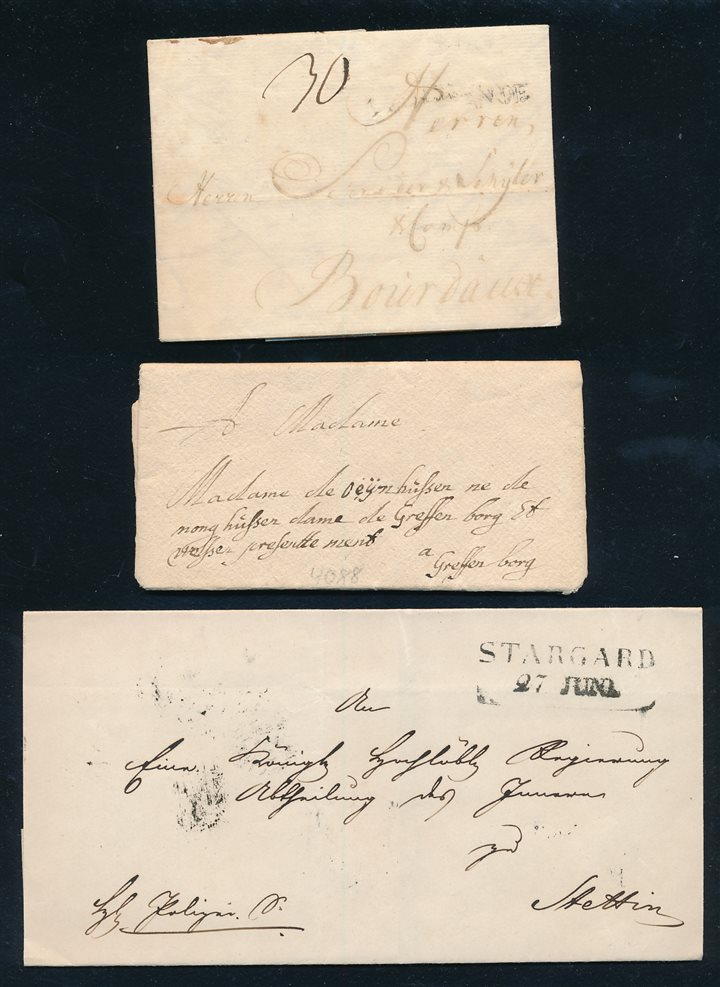 30
Herren,
Herrn Schröder & Schÿler
& Comp.
Bourdeaux.
A Madame
Madame de Oeÿnhüssen ne de
nong hüssen dame de Greffen borg et
presentte ment
a Greffen borg
4088
STARGARD
27 JUNI
An
Eine Königl Hochlöbl Regierung
Abtheilung des Innern
zu
Stettin
Polizei. S.